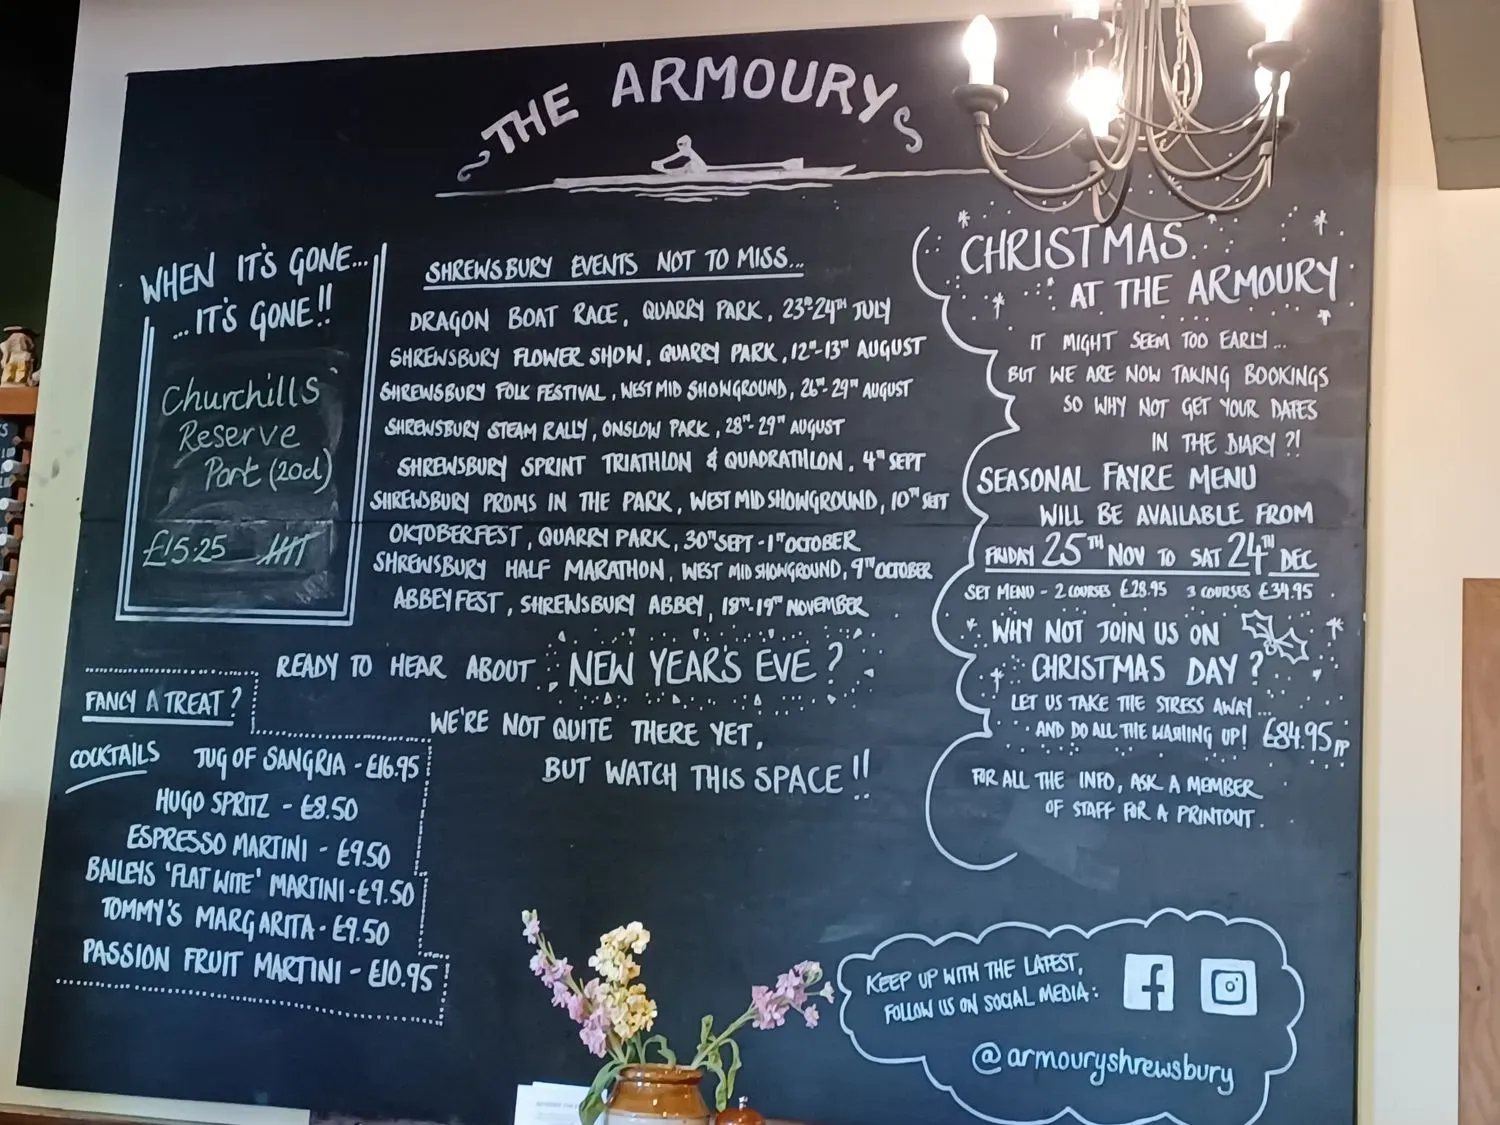 THE ARMOURY
WHEN IT'S GONE...
...IT'S GONE!!
Churchills
Reserve
Port (20cl)
£15.25
SHREWSBURY EVENTS NOT TO MISS...
DRAGON BOAT RACE, QUARRY PARK, 23RD-24TH JULY
SHREWSBURY FLOWER SHOW, QUARRY PARK, 12TH-13TH AUGUST
SHREWSBURY FOLK FESTIVAL, WEST MID SHOWGROUND, 26TH-29TH AUGUST
SHREWSBURY STEAM RALLY, ONSLOW PARK, 28TH-29TH AUGUST
SHREWSBURY SPRINT TRIATHLON & QUADRATHLON, 4TH SEPT
SHREWSBURY PROMS IN THE PARK, WEST MID SHOWGROUND, 10TH SEPT
OKTOBERFEST, QUARRY PARK, 30TH SEPT - 1ST OCTOBER
SHREWSBURY HALF MARATHON, WEST MID SHOWGROUND, 9TH OCTOBER
ABBEYFEST, SHREWSBURY ABBEY, 18TH-19TH NOVEMBER
READY TO HEAR ABOUT NEW YEAR'S EVE?
WE'RE NOT QUITE THERE YET,
BUT WATCH THIS SPACE!!
FANCY A TREAT?
COCKTAILS
JUG OF SANGRIA - £16.95
HUGO SPRITZ - £8.50
ESPRESSO MARTINI - £9.50
BAILEYS 'FLAT WITE' MARTINI - £9.50
TOMMY'S MARGARITA - £9.50
PASSION FRUIT MARTINI - £10.95
CHRISTMAS
AT THE ARMOURY
IT MIGHT SEEM TOO EARLY...
BUT WE ARE NOW TAKING BOOKINGS
SO WHY NOT GET YOUR DATES
IN THE DIARY?!
SEASONAL FAYRE MENU
WILL BE AVAILABLE FROM
FRIDAY 25TH NOV TO SAT 24TH DEC
SET MENU - 2 COURSES £28.95 3 COURSES £34.95
WHY NOT JOIN US ON
CHRISTMAS DAY?
LET US TAKE THE STRESS AWAY...
AND DO ALL THE WASHING UP! £84.95 PP
FOR ALL THE INFO, ASK A MEMBER
OF STAFF FOR A PRINTOUT.
KEEP UP WITH THE LATEST,
FOLLOW US ON SOCIAL MEDIA:
@armouryshrewsbury